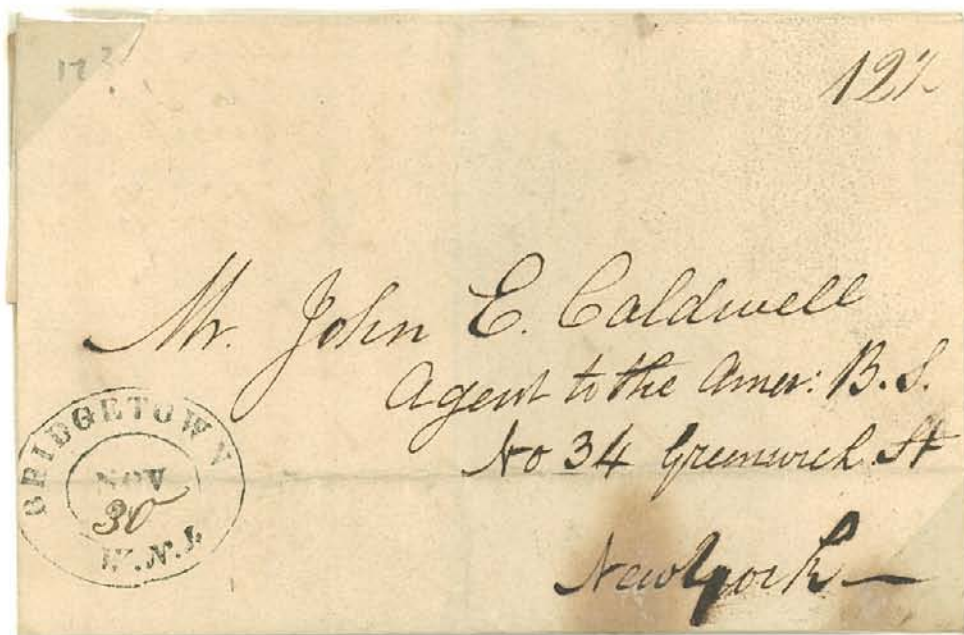 12½
Mr. John E. Caldwell
Agent to the Amer: B. S.
No 34 Greenwich St
New York
BRIDGETOWN
NOV
30
W.N.J.